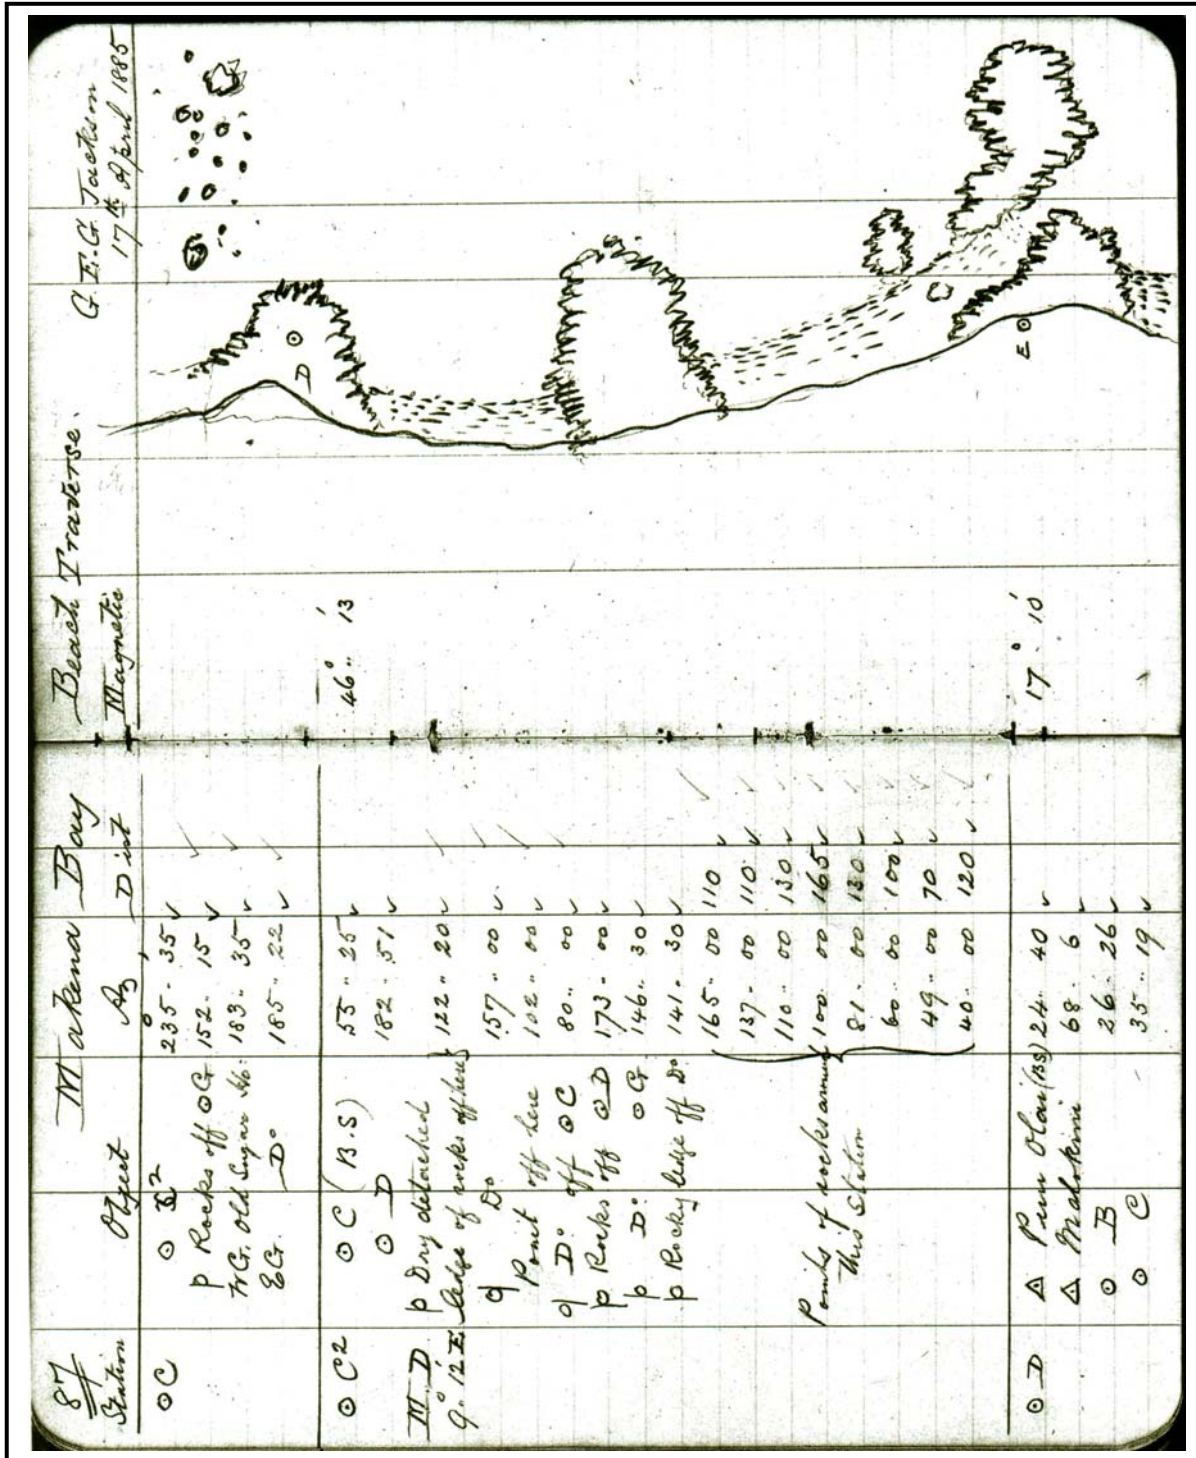 87 Makena Bay Beach Traverse. G.E.G. Jackson
17th April 1885
Station Object Az Dist Magnetic
⊙ C ⊙ C2 235 .. 35
p Rocks off ⊙ G 152 .. 15
W G. Old Sugar Ho: 183 .. 35
E G. Do 185 .. 22
⊙ C2 ⊙ C (B.S) 55 .. 25 46° .. 13'
⊙ D 182 .. 51
M. D. p Dry detached
9° .. 12' E. ledge of rocks off here 122 .. 20
q Do 157 .. 00
Point off here 102 .. 00
q Do off ⊙ C 80 .. 00
p Rocks off ⊙ D 173 .. 00
p Do ⊙ G 146 .. 30
p Rocky ledge off Do 141 .. 30
165 .. 00 110
137 .. 00 110
110 .. 00 130
Points of rocks around 100 .. 00 165
this Station 81 .. 00 130
60 .. 00 100
49 .. 00 70
40 .. 00 120
⊙ D △ Puu Olai (BS) 24 .. 40 17° .. 10'
△ Molokini 68 .. 6
⊙ B 26 .. 26
⊙ C 35 .. 19
D
E